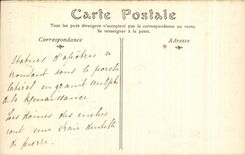 Carte Postale
Tous les pays étrangers n'acceptent pas la correspondance au recto.
Se renseigner à la poste.
Correspondance
Adresse
Statues d'apôtres se
trouvant sous le porche
latéral en grand
de la Renaissance
Les dômes des niches
sont une vraie dentelle
de pierre.